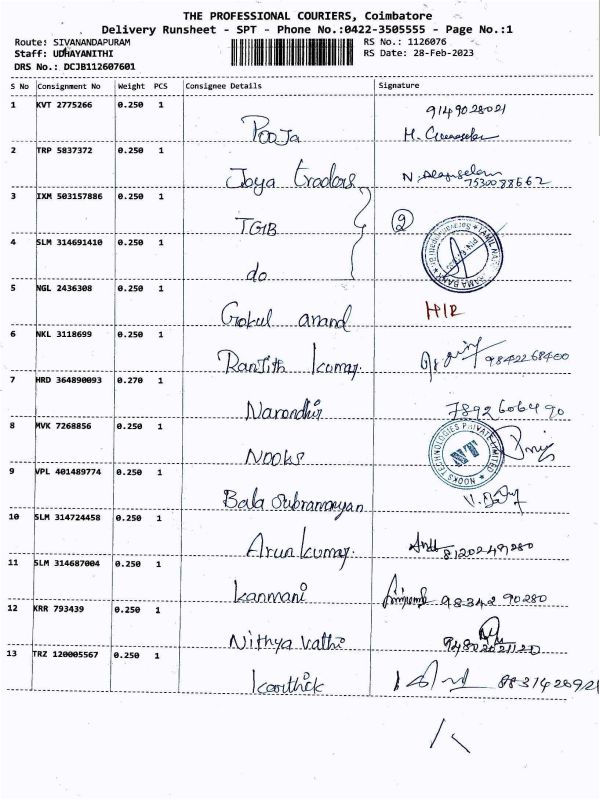 THE PROFESSIONAL COURIERS, Coimbatore
Delivery Runsheet - SPT - Phone No.:0422-3505555 - Page No.:1
Route: SIVANANDAPURAM RS No.: 1126076
Staff: UDHAYANITHI RS Date: 28-Feb-2023
DRS No.: DCJB112607601
S No Consignment No Weight PCS Consignee Details Signature
1 KVT 2775266 0.250 1
9149028021
Pooja
2 TRP 5837372 0.250 1
Joya traders
7530088662
3 IXM 503157886 0.250 1
TGIB 2
4 SLM 314691410 0.250 1
do
5 NGL 2436308 0.250 1
Gokul anand HIR
6 NKL 3118699 0.250 1
Ranjith kumar. 9842268400
7 HRD 364890093 0.270 1
Narendhir 7892606490
8 MVK 7268856 0.250 1
NOOKS TECHNOLOGIES PRIVATE LIMITED
NT
Nooks
9 VPL 401489774 0.250 1
Bala Subramaniyan
10 SLM 314724458 0.250 1
Arun kumar. 8120249280
11 SLM 314687004 0.250 1
kanmani 98342 90280
12 KRR 793439 0.250 1
Nithya Vathi
13 TRZ 120005567 0.250 1
karthick 8831426921